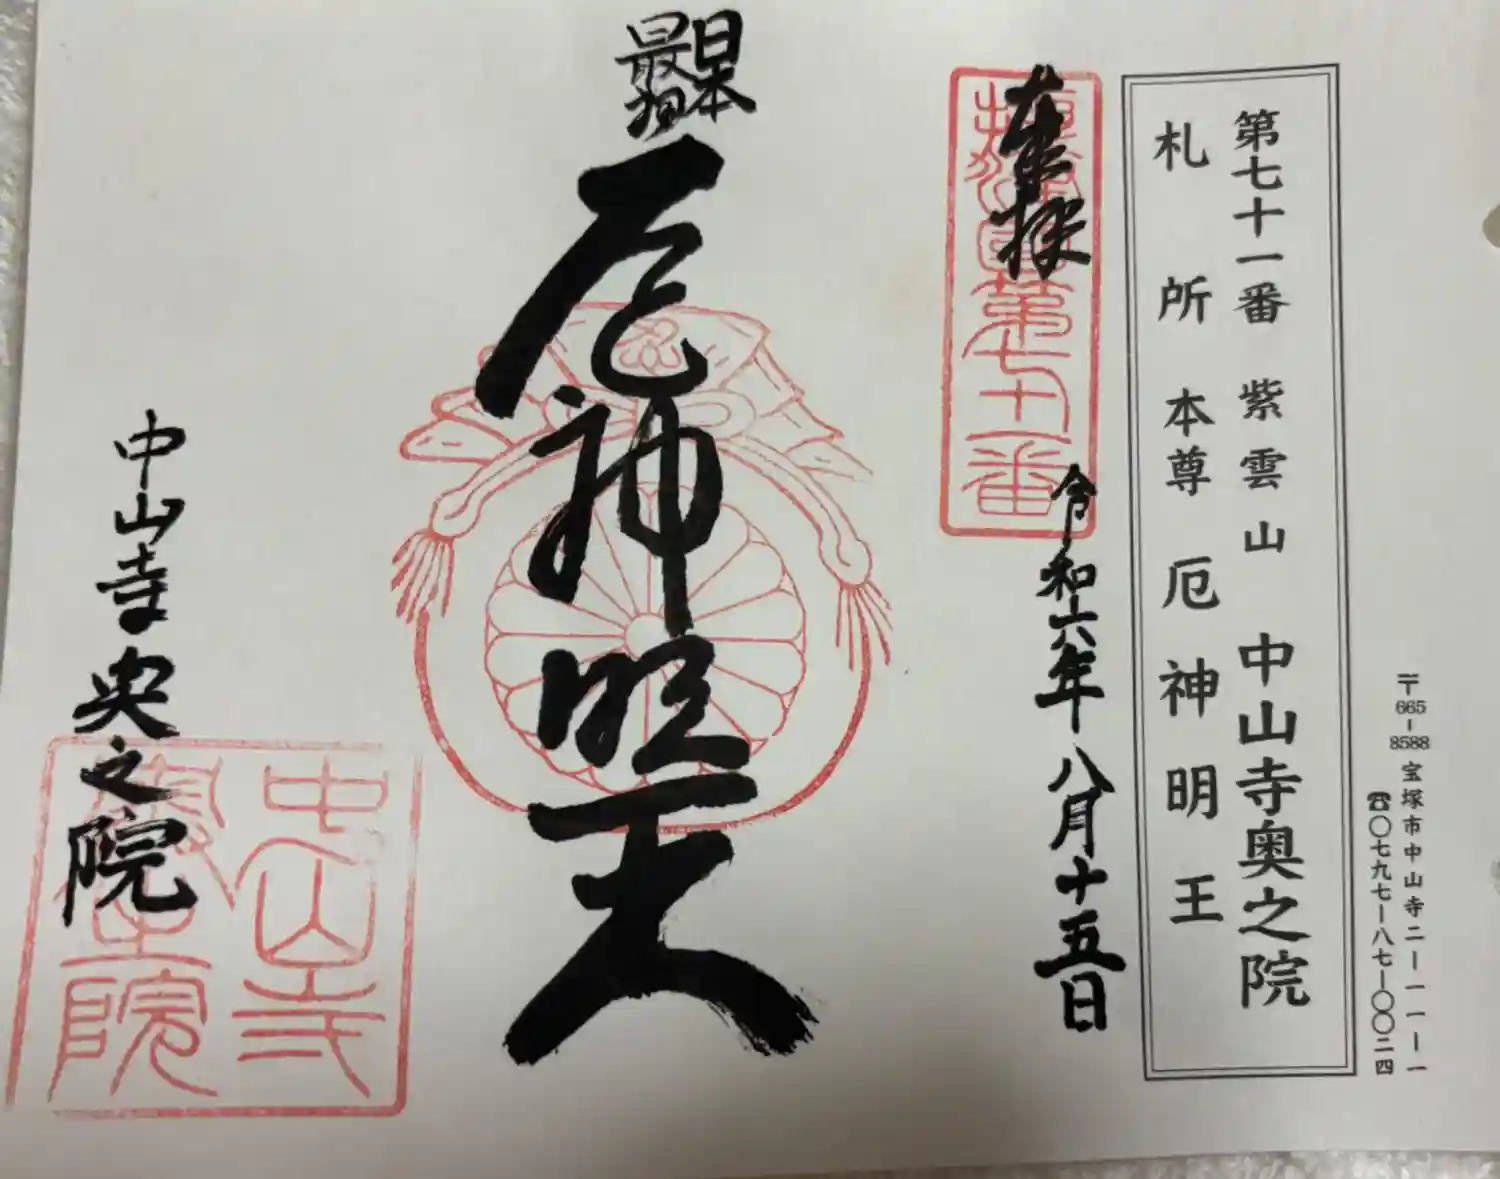 〒665-8588 宝塚市中山寺二ー一一ー一
☎〇七九七ー八七ー〇〇二四
第七十一番 紫雲山 中山寺奥之院
札所本尊 厄神明王
奉拝
令和六年八月十五日
第七十一番
日本
最初
厄神明王
中山寺奥之院
中山寺
奥之院